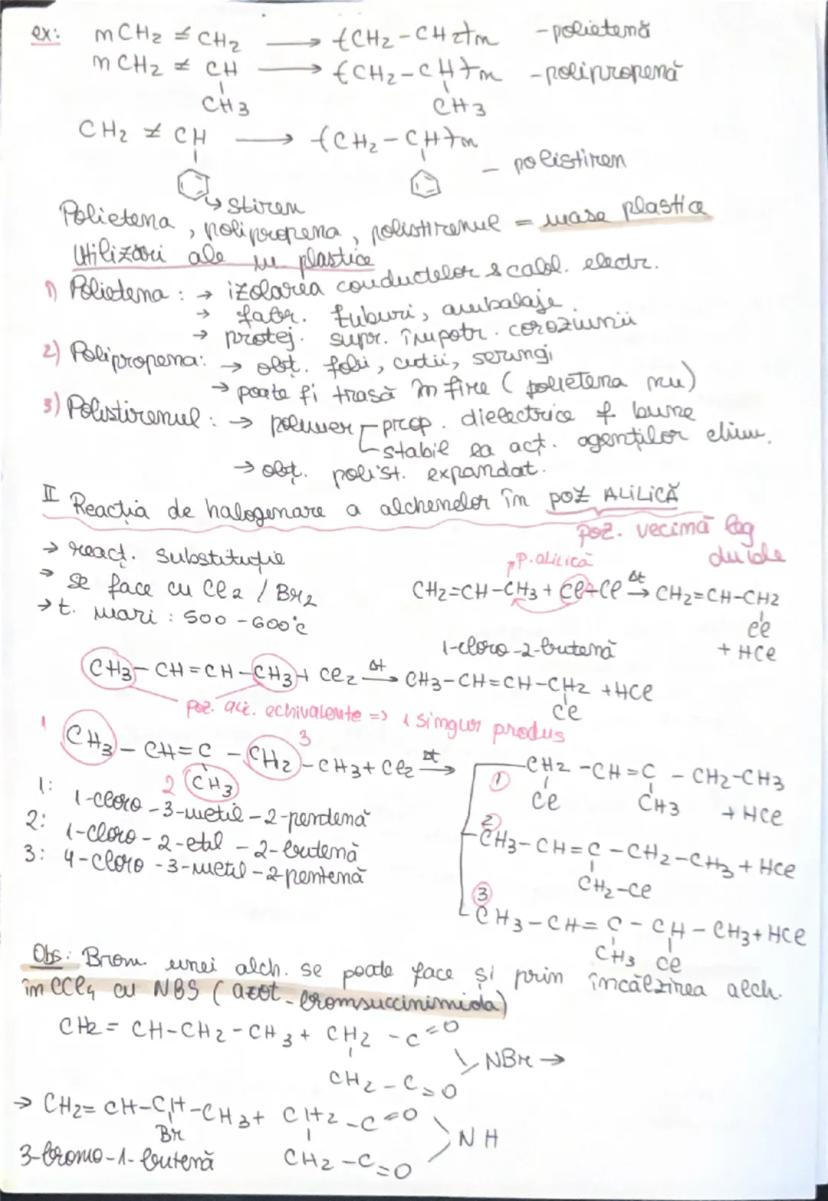 ex: nCH2 = CH2 → -(CH2-CH2)-n - polietenă
nCH2 = CH → -(CH2-CH)-n - polipropenă
CH3 CH3
CH2 = CH → -(CH2-CH)-n
- polistiren
↳ stiren
Polietena, polipropena, polistirenul = mase plastice
Utilizări ale m plastice
1) Polietena: → izolarea conductelor & cabl. electr.
→ fabr. tuburi, ambalaje
→ protej. supr. împotr. coroziunii
2) Polipropena: → obț. folii, cutii, seringi
→ poate fi trasă în fire (polietena nu)
3) Polistirenul: → polimer prop. dielectrice f bune
stabil la acț. agenților chim.
→ obț. polist. expandat.
II Reacția de halogenare a alchenelor în poz ALILICĂ
poz. vecimă leg duble
→ react. substituție
→ se face cu Cl2 / Br2
→ t. mari: 500-600°C
p. alilică
CH2=CH-CH3 + Cl-Cl Δt→ CH2=CH-CH2
Cl
+ HCl
1-cloro-2-butenă
CH3-CH=CH-CH3 + Cl2 Δt→ CH3-CH=CH-CH2 + HCl
Cl
poz. alil. echivalente => 1 singur produs
1 3
CH3-CH=C-CH2-CH3 + Cl2 Δt→
2 CH3
1 CH2-CH=C-CH2-CH3
Cl CH3 + HCl
2 CH3-CH=C-CH2-CH3 + HCl
CH2-Cl
3 CH3-CH=C-CH-CH3 + HCl
CH3 Cl
1: 1-cloro-3-metil-2-pentenă
2: 1-cloro-2-etil-2-butenă
3: 4-cloro-3-metil-2-pentenă
Obs: Brom. unei alch. se poate face și prin încălzirea alch.
în CCl4 cu NBS (azot-bromsuccinimida)
CH2=CH-CH2-CH3 + CH2-C=O
NBr →
CH2-C=O
→ CH2=CH-CH-CH3 + CH2-C=O
Br NH
3-bromo-1-butenă CH2-C=O